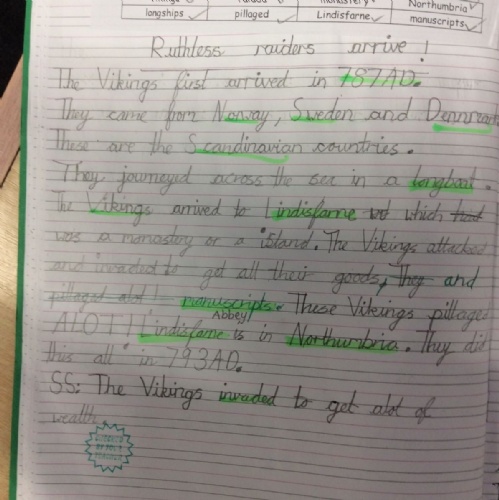 Northumbria
longships pillaged Lindisfarne manuscripts
Ruthless raiders arrive!
The Vikings first arrived in 787AD.
They came from Norway, Sweden and Denmark
These are the Scandinavian countries.
They journeyed across the sea in a longboat.
The Vikings arrived to Lindisfarne which
was a monastery or a island. The Vikings attacked
and invaded to get all their goods, They and
pillaged alot! manuscripts. These Vikings pillaged
Abbey
ALOT! Lindisfarne is in Northumbria. They did
this all in 793AD.
SS: The Vikings invaded to get alot of
wealth.